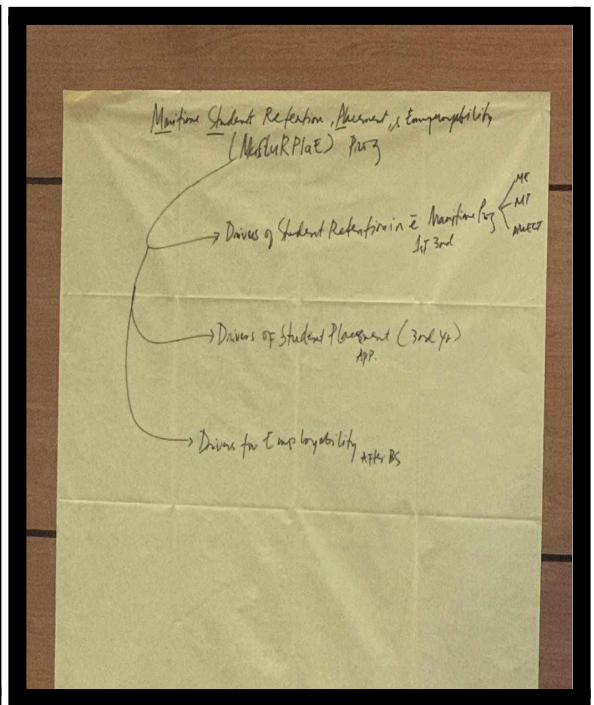 Maritime Student Retention, Placement, & Employability
(MaStuRPlaE) Prog
→ Drivers of Student Retention in ē Maritime Prog
1st 3rd
MT
→ Drivers of Student Placement (3rd yr)
APP.
→ Drivers for Employability
After BS